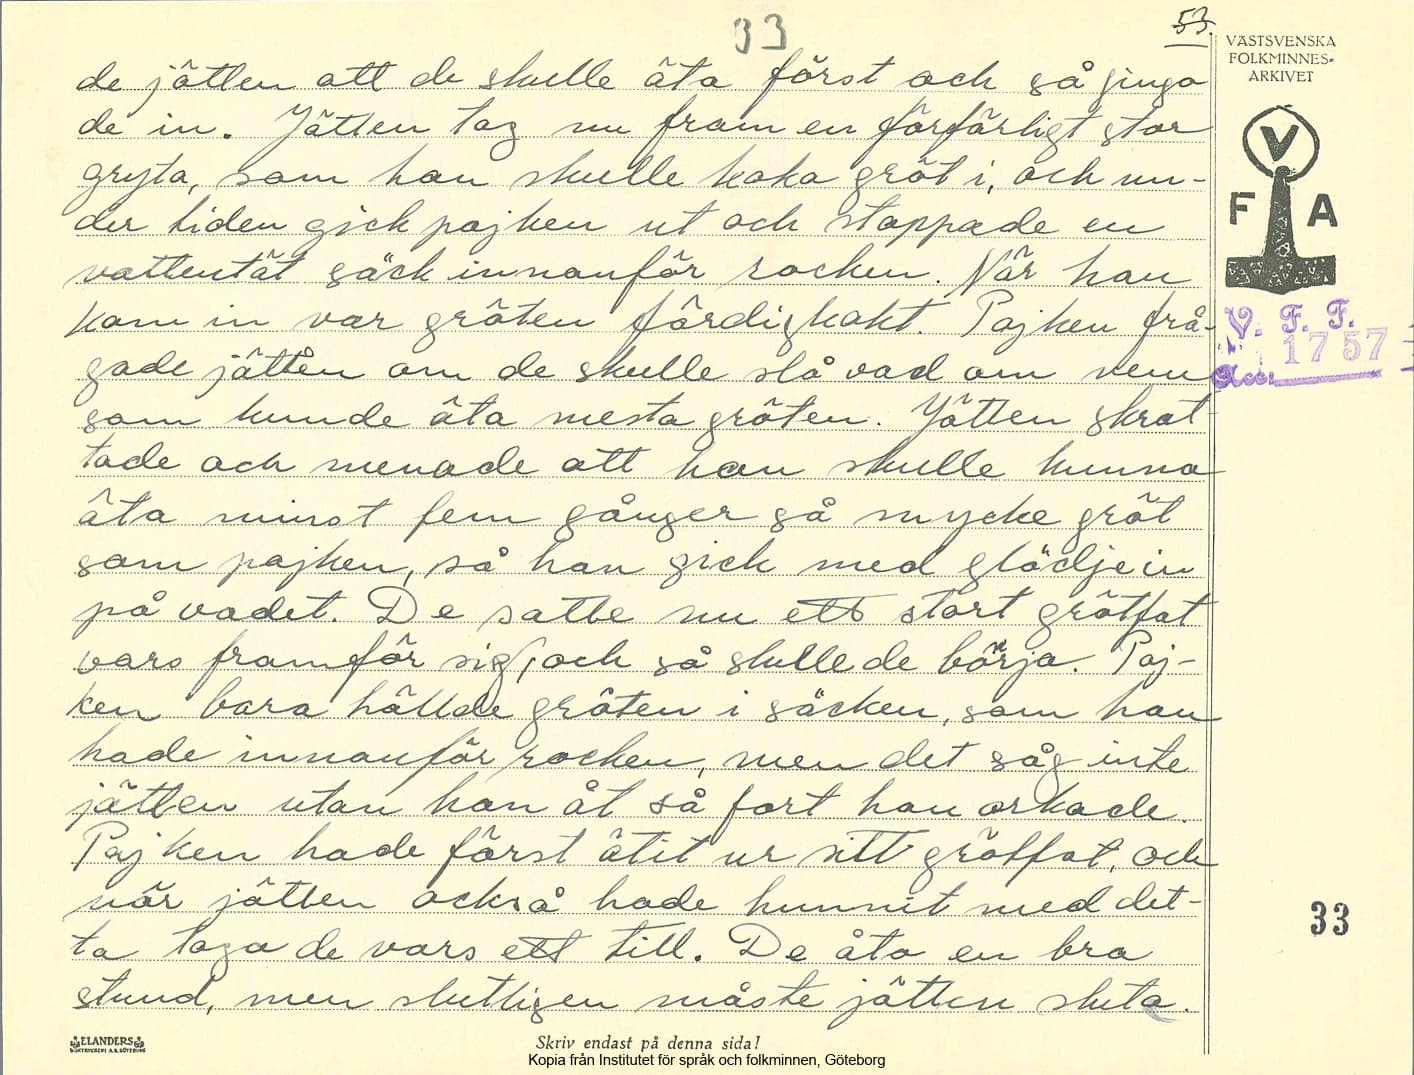 33
53.
VÄSTSVENSKA
FOLKMINNES-
ARKIVET
V
F A
V. F. F.
Acc. 1757
de jätten att de skulle äta först och så gingo
de in. Jätten tog nu fram en förfärligt stor
gryta, som han skulle koka gröt i, och un-
der tiden gick pojken ut och stoppade en
vattentät säck innanför rocken. När han
kom in var gröten färdigkokt. Pojken frå-
gade jätten om de skulle slå vad om vem
som kunde äta mesta gröten. Jätten skrat
tade och menade att han skulle kunna
äta minst fem gånger så mycke gröt
som pojken, så han gick med glädje in
på vadet. De satte nu ett stort grötfat
vars framför sig, och så skulle de börja. Poj-
ken bara hällde gröten i säcken, som han
hade innanför rocken, men det såg inte
jätten utan han åt så fort han orkade.
Pojken hade först ätit ur sitt grötfat, och
när jätten också hade hunnit med det-
ta togo de vars ett till. De åto en bra
stund, men slutligen måste jätten sluta.
33
ELANDERS
BOKTRYCKERI A.B. GÖTEBORG
Skriv endast på denna sida!
Kopia från Institutet för språk och folkminnen, Göteborg